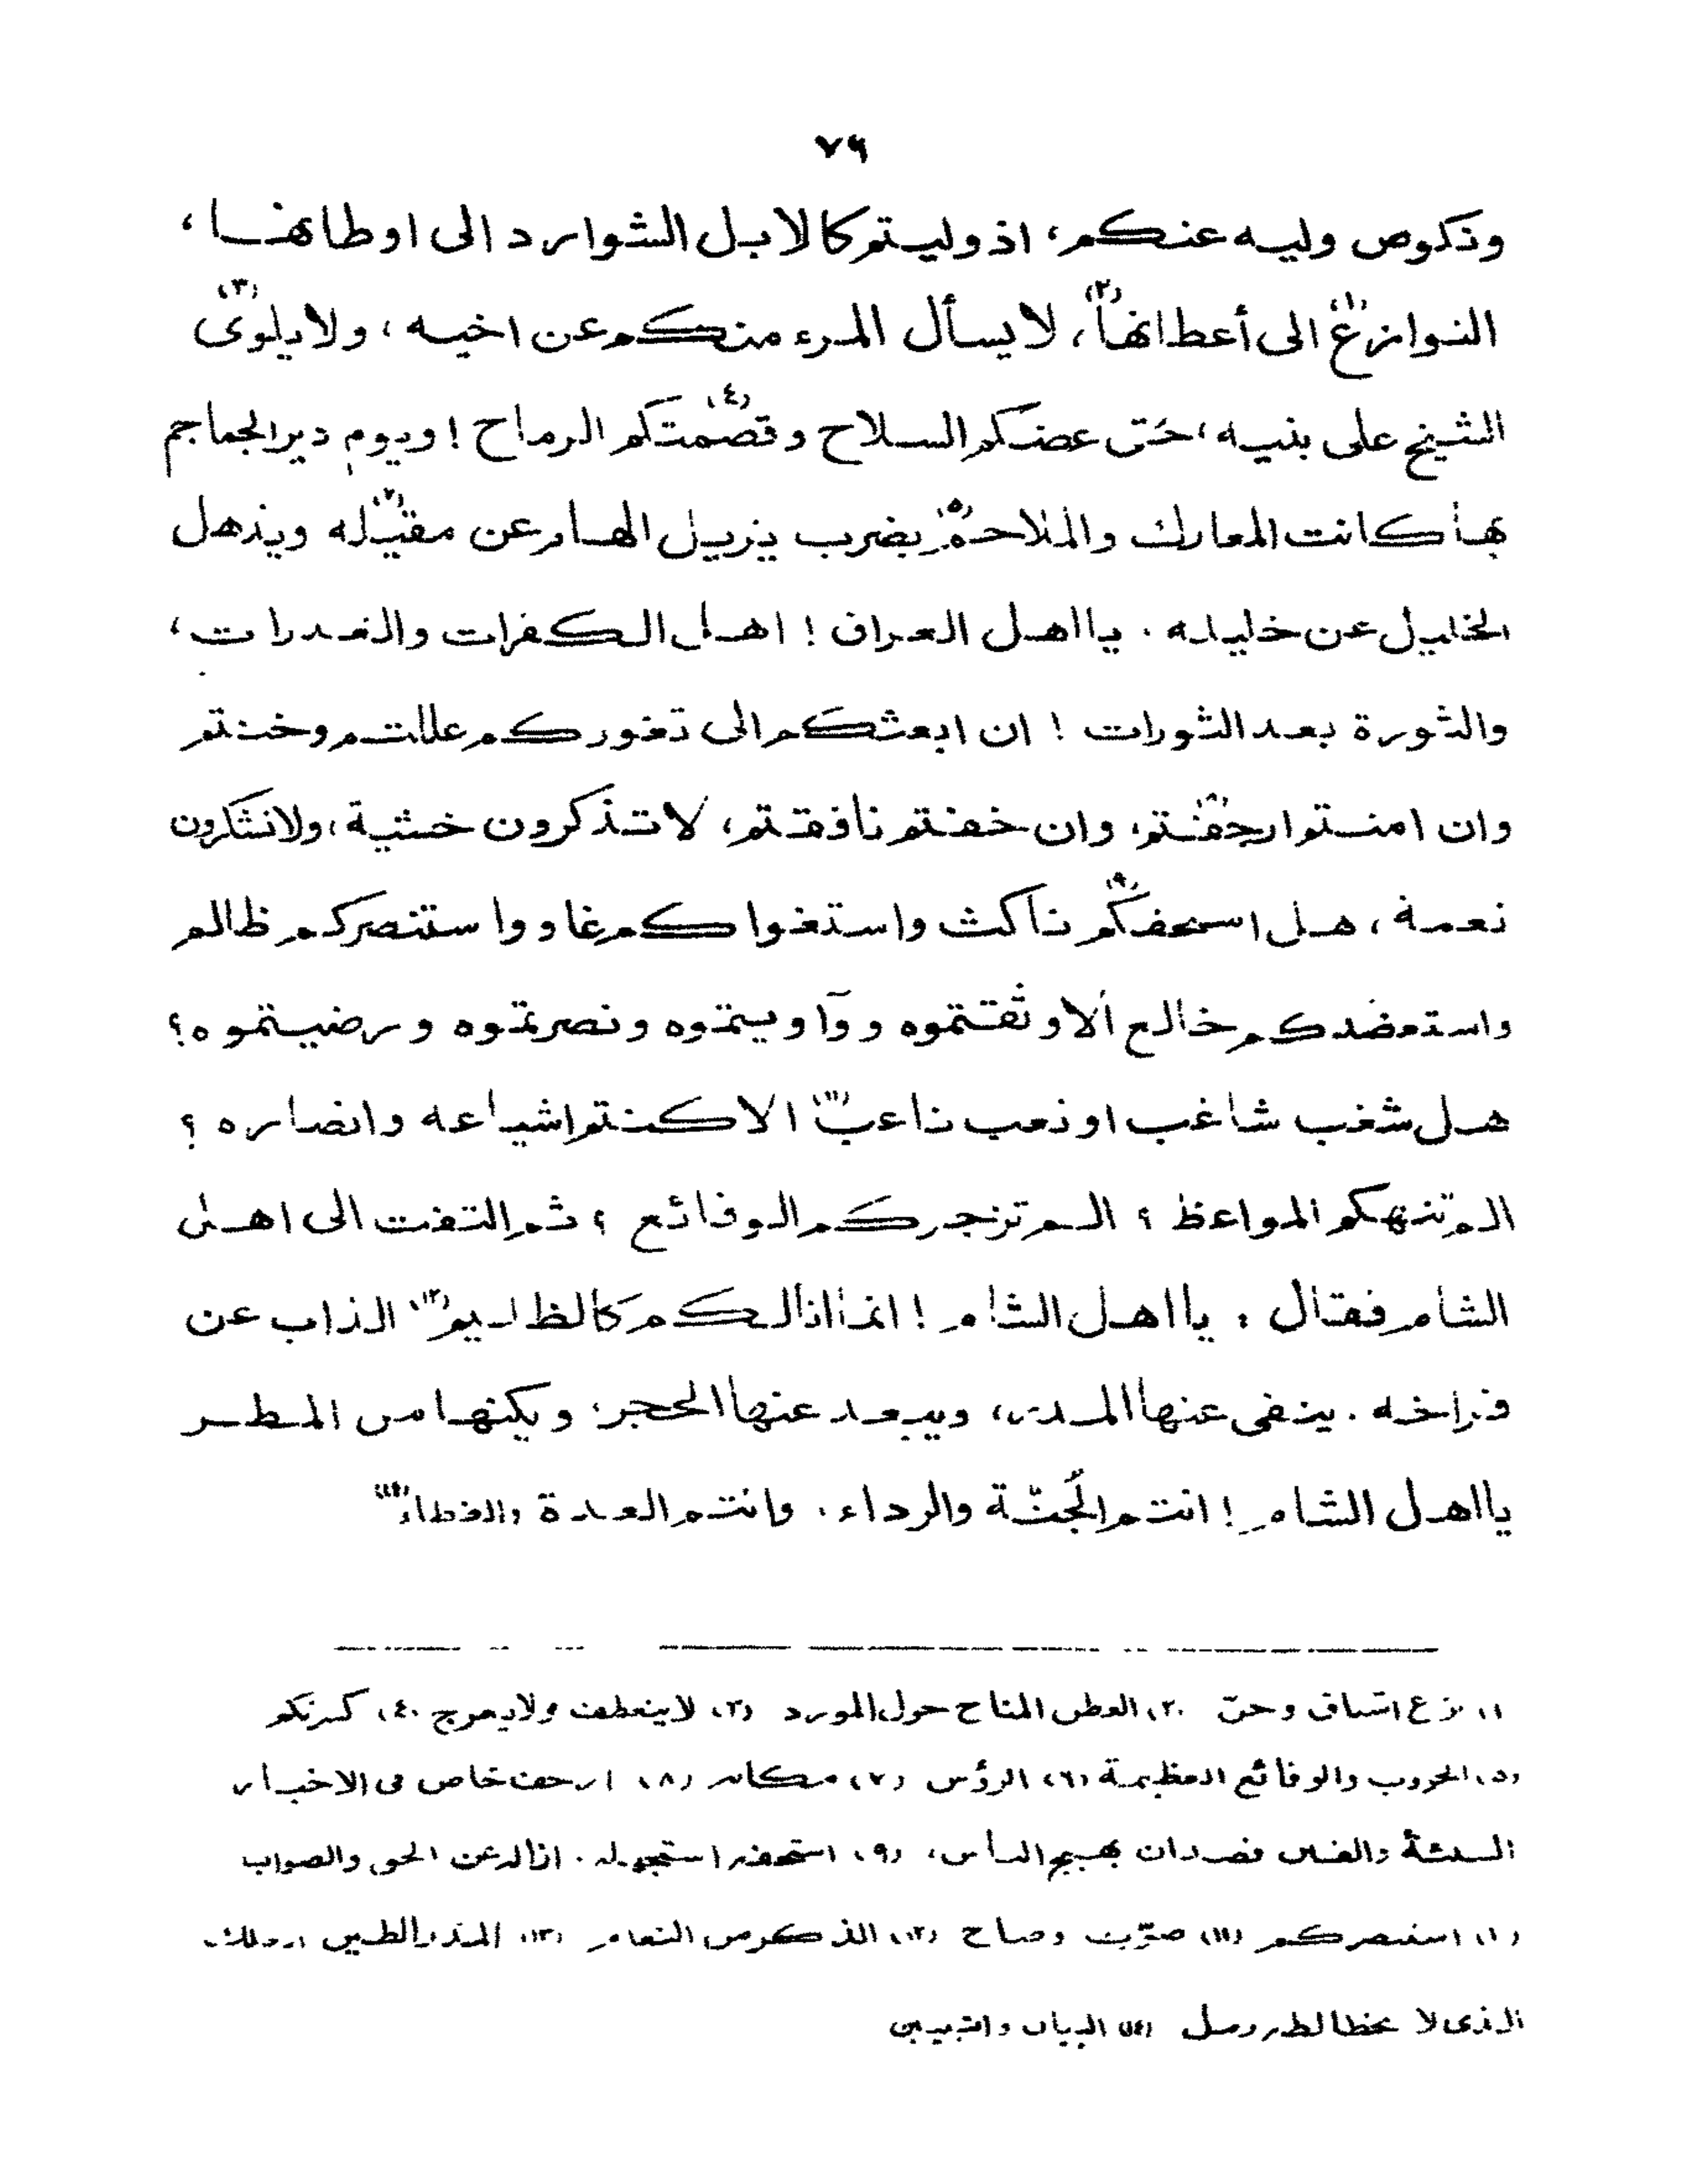 ٧٩
ونكوص وليه عنكم، اذ وليتم كالابل الشوارد الى اوطانها،
النوازع (١) الى أعطانها (٢)، لا يسأل المرء منكم عن اخيه، ولا يلوى (٣)
الشيخ على بنيه، حتى عضكم السلاح وقصمتكم (٤) الرماح! ويوم دير الجماجم
بها كانت المعارك والملاحم (٥) بضرب يزيل الهام عن مقيله (٧) ويذهل
الخليل عن خليله . يا اهل العراق! اهل الكفرات والغدرات،
والثورة بعد الثورات ! ان ابعثكم الى ثغوركم غللتم وخنتم
وان امنتم ارجفتم (٨)، وان خفتم نافقتم، لا تذكرون خشية، ولا تشكرون
نعمة، هل استخفكم (٩) ناكث واستغواكم غاو واستنصركم ظالم
واستعضدكم خالع الا وثقتموه وآويتموه ونصرتموه ورضيتموه؟
هل شغب شاغب او نعب ناعب (١١) الا كنتم اشياعه وانصاره ؟
الم تنهكم المواعظ ؟ الم تزجركم الوقائع ؟ ثم التفت الى اهل
الشام فقال : يا اهل الشام ! انما انا لكم كالظليم (١٢) الذاب عن
فراخه . ينفى عنها المدر، ويبعد عنها الحجر، ويكنها من المطر
يا اهل الشام ! انتم الجنّة والرداء . وانتم العدة والغطاء (١٤)
(١) نزع اشتاق وحنّ (٢) العطن المناخ حول المورد (٣) لا ينعطف ولا يعرج (٤) كسرتكم
(٥) الحروب والوقائع العظيمة (٦) الرؤس (٧) مكانه (٨) ارجف خاض فى الاخبار
السيئة والفتن قصد ان يهيج الناس، (٩) استخفه استجهله . ازاله عن الحق والصواب
(١٠) استنصركم (١١) صوّت وصاح (١٢) الذكر من النعام (١٣) المدر الطين
الذى لا يخالطه رمل (١٤)